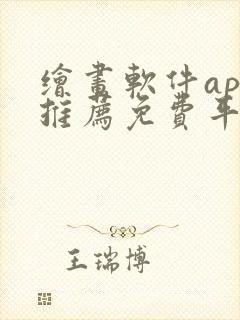 繪畫軟件ap
推薦免費平
王瑞博